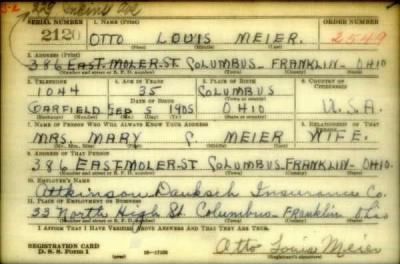 SERIAL NUMBER 1. NAME (Print) ORDER NUMBER
2120 OTTO LOUIS MEIER. 2549
(First) (Middle) (Last)
2. ADDRESS (Print)
386 EAST-MOLER-ST COLUMBUS-FRANKLIN-OHIO
3. TELEPHONE 4. AGE IN YEARS 5. PLACE OF BIRTH 6. COUNTRY OF CITIZENSHIP
1044 35 COLUMBUS
DATE OF BIRTH
GARFIELD 5 1905 OHIO U.S.A.
7. NAME OF PERSON WHO WILL ALWAYS KNOW YOUR ADDRESS 8. RELATIONSHIP OF THAT PERSON
MRS. MARY C. MEIER WIFE.
(Mr., Mrs., Miss) (First) (Middle) (Last)
9. ADDRESS OF THAT PERSON
386 EAST-MOLER-ST COLUMBUS-FRANKLIN-OHIO.
10. EMPLOYER'S NAME
Insurance Co.
11. PLACE OF EMPLOYMENT OR BUSINESS
33 North High St. Columbus-FRANKLIN Ohio
I AFFIRM THAT I HAVE VERIFIED ABOVE ANSWERS AND THAT THEY ARE TRUE.
REGISTRATION CARD
D. S. S. Form 1
Otto Louis Meier
(Registrant's signature)